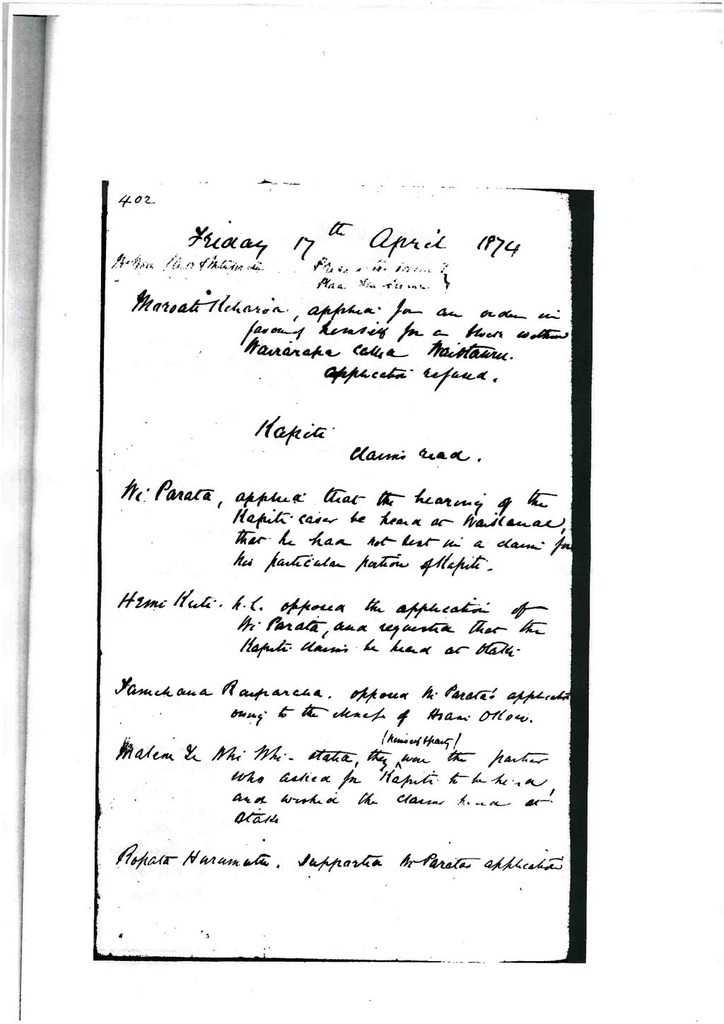 402
Friday 17th April 1874
applied for an order in
favour of himself for a block within
Wairarapa called
application refused.
Kapiti
claims read.
Wi Parata, applied that the hearing of the
Kapiti cases be heard at Waikanae,
that he had not sent in a claim for
his particular portion of Kapiti.
opposed the application of
Wi Parata, and requested that the
Kapiti claims be heard at Otaki
Tamihana Rauparaha. opposed Wi Parata's application
owing to the illness of
(himself & party)
Matene Te Whi Whi - stated, they were the parties
who asked for Kapiti to be heard,
and wished the claims heard at
Otaki
Ropata Hurumutu. Supported Wi Paratas application